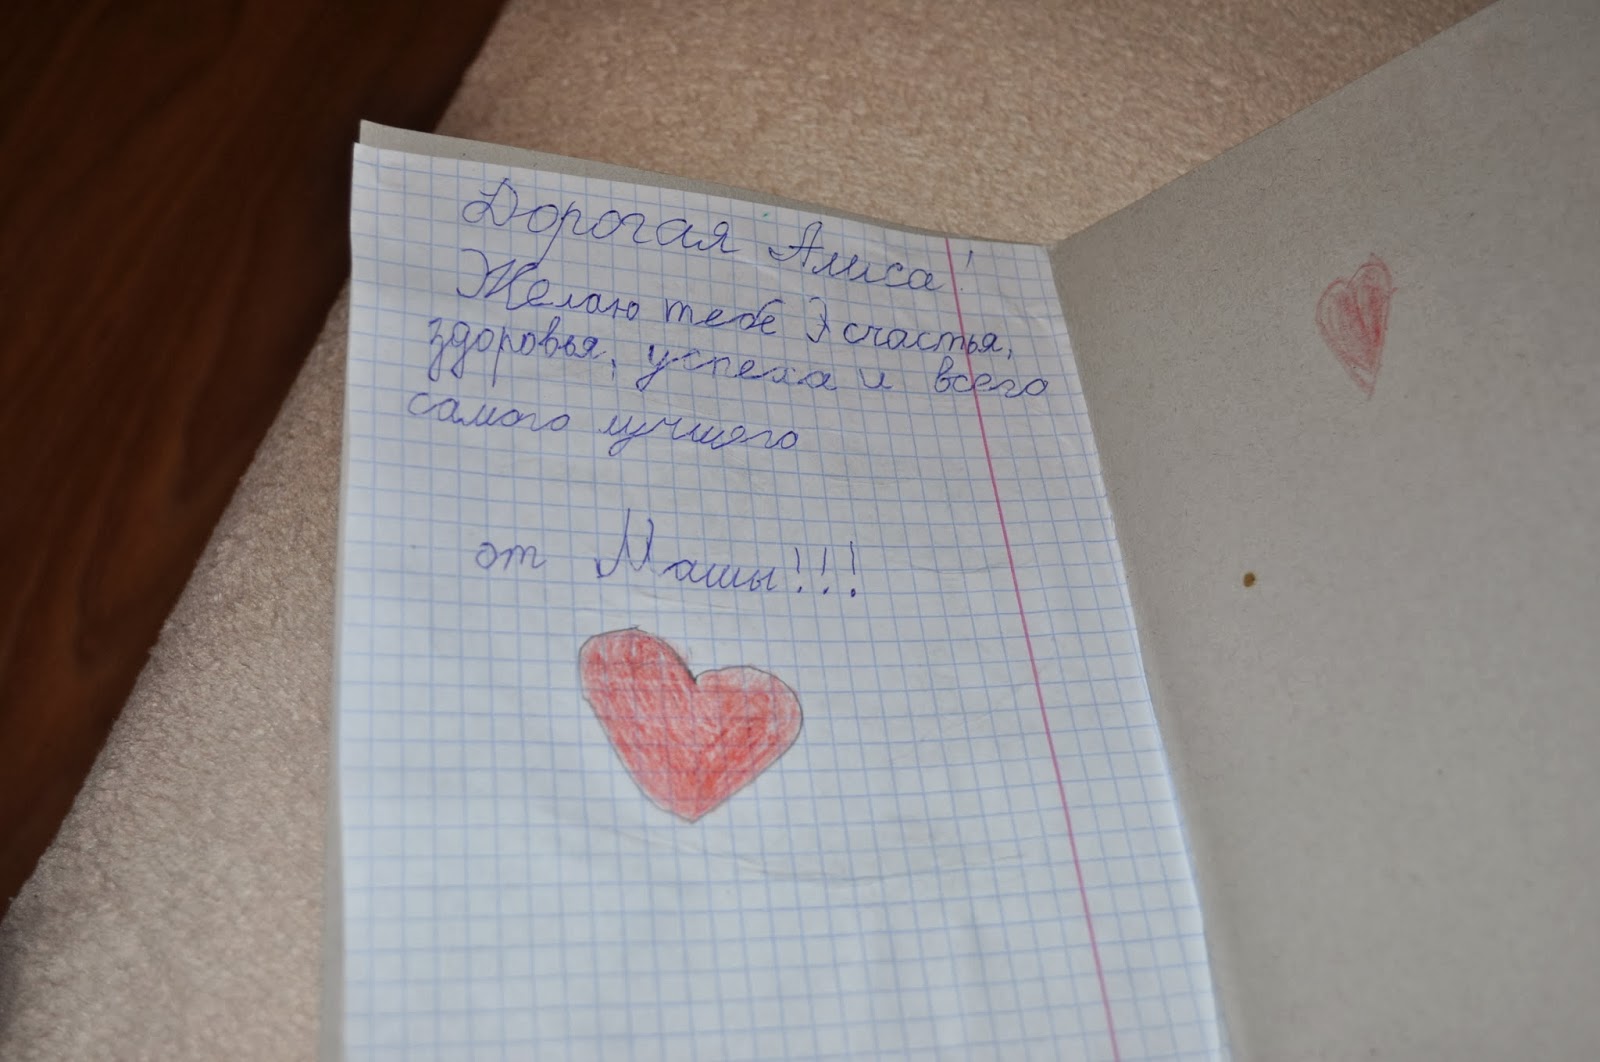 Дорогая Алиса!
Желаю тебе счастья,
здоровья, успеха и всего
самого лучшего
от Машы!!!